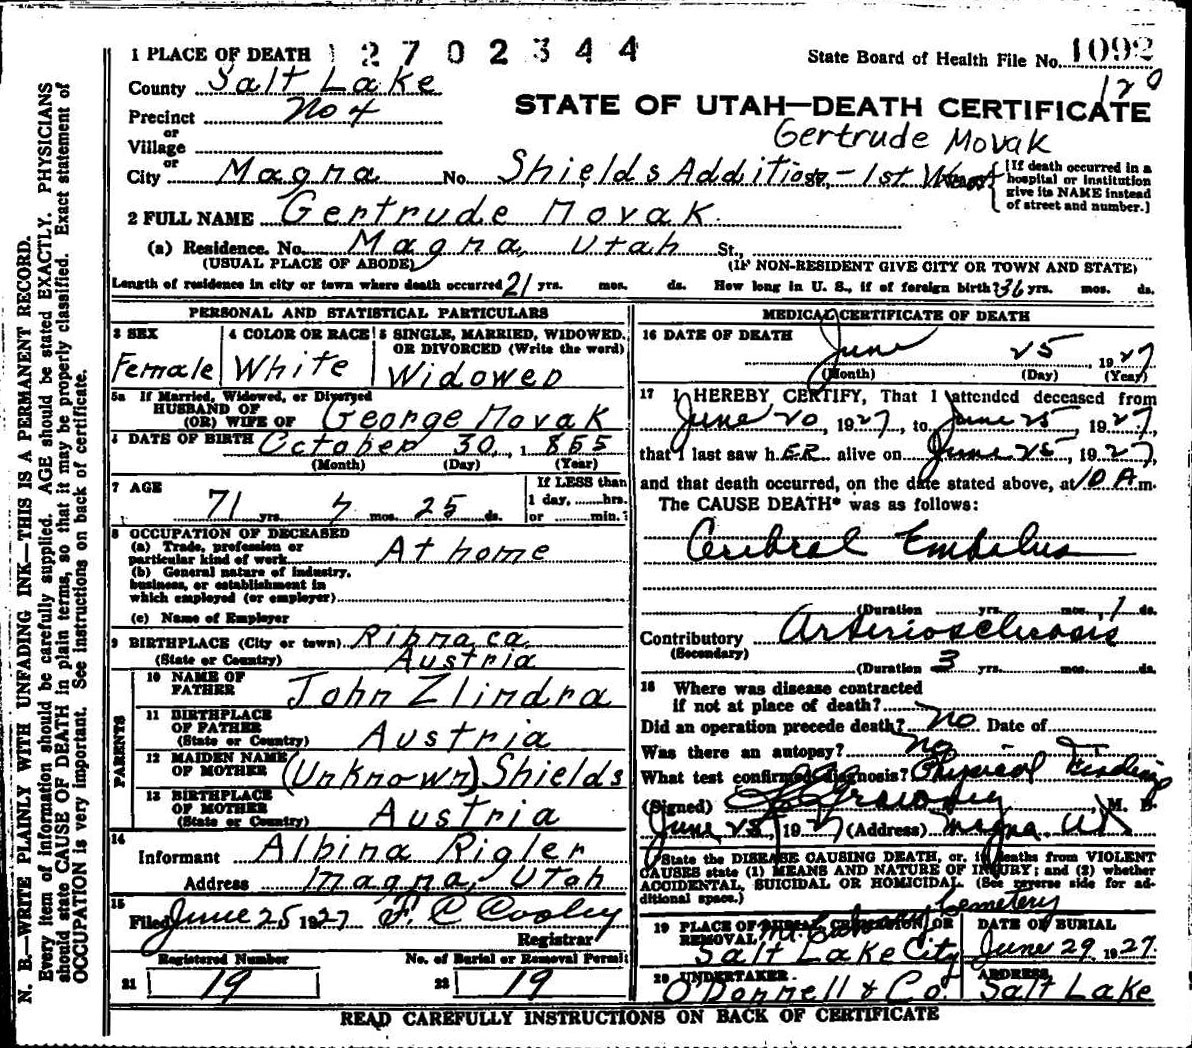 1 PLACE OF DEATH 12702344
State Board of Health File No. 1092
120
County Salt Lake
STATE OF UTAH—DEATH CERTIFICATE
Precinct No 4
Gertrude Movak
or
Village
or
City Magna No. Shields Addition, - 1st
[If death occurred in a hospital or institution give its NAME instead of street and number.]
2 FULL NAME Gertrude Movak.
(a) Residence. No. Magna, Utah St.,
(USUAL PLACE OF ABODE) (IF NON-RESIDENT GIVE CITY OR TOWN AND STATE)
Length of residence in city or town where death occurred 21 yrs. mos. ds. How long in U. S., if of foreign birth? 36 yrs. mos. ds.
PERSONAL AND STATISTICAL PARTICULARS
3 SEX
Female
4 COLOR OR RACE
White
5 SINGLE, MARRIED, WIDOWED, OR DIVORCED (Write the word)
Widowed
5a If Married, Widowed, or Divorced
HUSBAND OF
(OR) WIFE OF George Movak
6 DATE OF BIRTH October 30, 1855
(Month) (Day) (Year)
7 AGE
71 yrs. 7 mos. 25 ds.
If LESS than
1 day, hrs.
or min.?
8 OCCUPATION OF DECEASED
(a) Trade, profession or
particular kind of work At home
(b) General nature of industry,
business, or establishment in
which employed (or employer)
(c) Name of Employer
9 BIRTHPLACE (City or town) Ribnaca
(State or Country) Austria
PARENTS
10 NAME OF
FATHER John Zlindra
11 BIRTHPLACE
OF FATHER
(State or Country) Austria
12 MAIDEN NAME
OF MOTHER (Unknown) Shields
13 BIRTHPLACE
OF MOTHER
(State or Country) Austria
14
Informant Albina Rigler
Address Magna, Utah
15
Filed June 25 1927 F. C Cooley
Registrar
Registered Number No. of Burial or Removal Permit
21 19 22 19
MEDICAL CERTIFICATE OF DEATH
16 DATE OF DEATH
June 25 1927
(Month) (Day) (Year)
17 I HEREBY CERTIFY, That I attended deceased from
June 20, 1927, to June 25, 1927,
that I last saw hER alive on June 25, 1927,
and that death occurred, on the date stated above, at 10 A m.
The CAUSE DEATH* was as follows:
Cerebral Embolus
(Duration yrs. mos., 1 ds.
Contributory Arteriosclerosis
(Secondary)
(Duration 3 yrs. mos. ds.
18 Where was disease contracted
if not at place of death?
Did an operation precede death? no Date of
Was there an autopsy? no
What test confirmed diagnosis? Physical Finding
(Signed) M. D.
June 25, 1927 (Address) Magna Ut
*State the DISEASE CAUSING DEATH, or, in deaths from VIOLENT
CAUSES state (1) MEANS AND NATURE OF INJURY; and (2) whether
ACCIDENTAL, SUICIDAL OR HOMICIDAL. (See reverse side for ad-
ditional space.)
Cemetery
19 PLACE OF BURIAL, CREMATION, OR
REMOVAL Mt. Calvary
Salt Lake City
DATE OF BURIAL
June 29, 1927.
20 UNDERTAKER
O'Donnell & Co.
ADDRESS
Salt Lake
READ CAREFULLY INSTRUCTIONS ON BACK OF CERTIFICATE
N. B.—WRITE PLAINLY WITH UNFADING INK—THIS IS A PERMANENT RECORD.
Every item of information should be carefully supplied. AGE should be stated EXACTLY. PHYSICIANS
should state CAUSE OF DEATH in plain terms, so that it may be properly classified. Exact statement of
OCCUPATION is very important. See instructions on back of certificate.